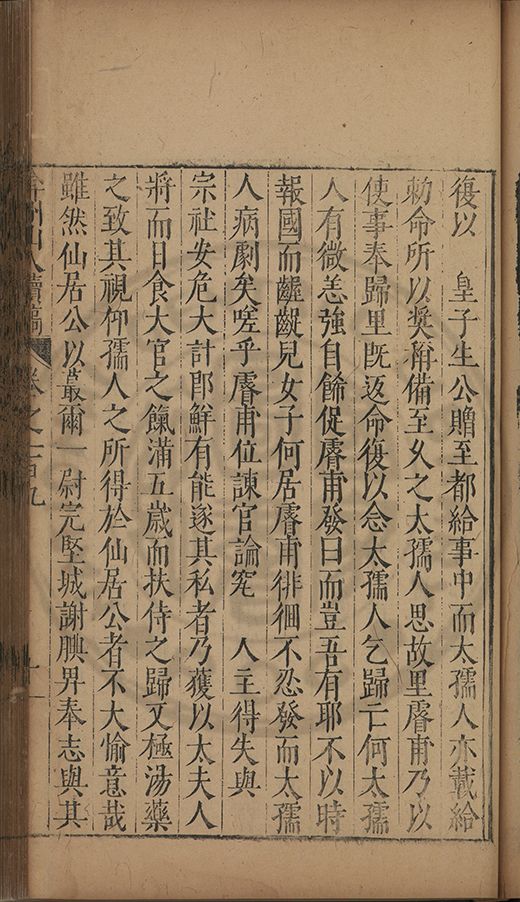 復以　皇子生公贈至都給事中而太孺人亦載給
勑命所以奬稱備至乆之太孺人思故里膺甫乃以
使事奉歸里既返命復以念太孺人乞歸亡何太孺
人有微恙強自餙促膺甫發曰而豈吾有耶不以時
報國而齷齪兒女子何居膺甫徘徊不忍發而太孺
人病劇矣嗟乎膺甫位諫官論寃　人主得失與
宗社安危大計郎鮮有能遂其私者乃獲以太夫人
將而日食大官之餼滿五歲而扶侍之歸又極湯藥
之致其視仰孺人之所得於仙居公者不大愉意哉
雖然仙居公以蕞爾一尉完堅城謝腴畀奉志與其
州山人續稿　卷之一百九